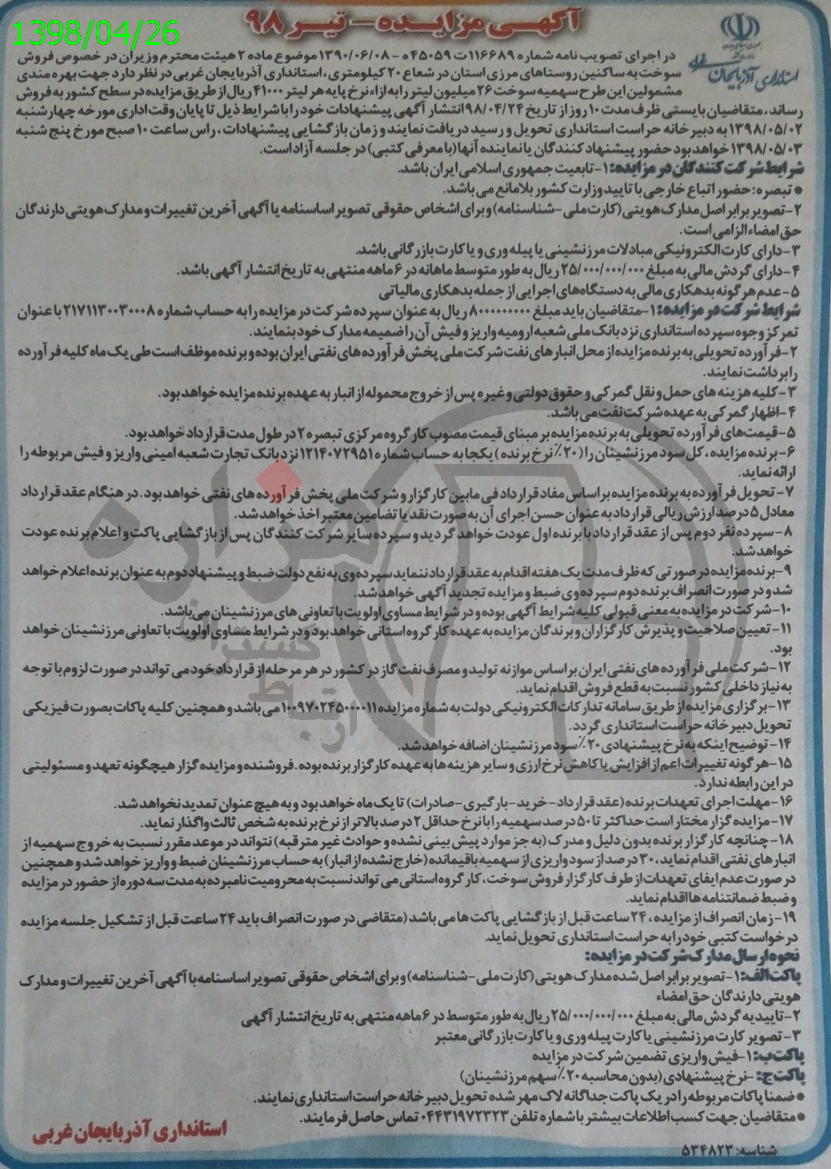 1398/04/26
آگهی مزایده - تیر ۹۸
استانداری آذربایجان غربی
در اجرای تصویب نامه شماره ۱۱۶۶۸۹ت ۴۵۰۵۹ه - ۱۳۹۰/۰۶/۰۸ موضوع ماده ۲ هیئت محترم وزیران در خصوص فروش
سوخت به ساکنین روستاهای مرزی استان در شعاع ۲۰ کیلومتری، استانداری آذربایجان غربی در نظر دارد جهت بهره مندی
مشمولین این طرح سهمیه سوخت ۲۶ میلیون لیتر را به ازاء نرخ پایه هر لیتر ۴۱۰۰۰ ریال از طریق مزایده در سطح کشور به فروش
رساند، متقاضیان بایستی ظرف مدت ۱۰ روز از تاریخ ۹۸/۰۴/۲۴ انتشار آگهی پیشنهادات خود را با شرایط ذیل تا پایان وقت اداری مورخه چهارشنبه
۱۳۹۸/۰۵/۰۲ به دبیرخانه حراست استانداری تحویل و رسید دریافت نمایند و زمان بازگشایی پیشنهادات، راس ساعت ۱۰ صبح مورخ پنج شنبه
۱۳۹۸/۰۵/۰۳ خواهد بود حضور پیشنهاد کنندگان یا نماینده آنها (با معرفی کتبی) در جلسه آزاد است.
شرایط شرکت کنندگان در مزایده: ۱- تابعیت جمهوری اسلامی ایران باشد.
● تبصره: حضور اتباع خارجی با تایید وزارت کشور بلامانع می باشد.
۲- تصویر برابر اصل مدارک هویتی (کارت ملی - شناسنامه) و برای اشخاص حقوقی تصویر اساسنامه یا آگهی آخرین تغییرات و مدارک هویتی دارندگان
حق امضاء الزامی است.
۳- دارای کارت الکترونیکی مبادلات مرزنشینی یا پیله وری و یا کارت بازرگانی باشد.
۴- دارای گردش مالی به مبلغ ۲۵/۰۰۰/۰۰۰/۰۰۰ ریال به طور متوسط ماهانه در ۶ ماهه منتهی به تاریخ انتشار آگهی باشد.
۵- عدم هر گونه بدهکاری مالی به دستگاه های اجرایی از جمله بدهکاری مالیاتی
شرایط شرکت در مزایده: ۱- متقاضیان باید مبلغ ۸۰۰۰۰۰۰۰۰۰ ریال به عنوان سپرده شرکت در مزایده را به حساب شماره ۲۱۷۱۱۳۰۰۳۰۰۸ با عنوان
تمرکز وجوه سپرده استانداری نزد بانک ملی شعبه ارومیه واریز و فیش آن را ضمیمه مدارک خود بنمایند.
۲- فرآورده تحویلی به برنده مزایده از محل انبارهای نفت شرکت ملی پخش فرآورده های نفتی ایران بوده و برنده موظف است طی یک ماه کلیه فرآورده
را برداشت نمایند.
۳- کلیه هزینه های حمل و نقل گمرکی و حقوق دولتی و غیره پس از خروج محموله از انبار به عهده برنده مزایده خواهد بود.
۴- اظهار گمرکی به عهده شرکت نفت می باشد.
۵- قیمت های فرآورده تحویلی به برنده مزایده بر مبنای قیمت مصوب کارگروه مرکزی تبصره ۲ در طول مدت قرارداد خواهد بود.
۶- برنده مزایده، کل سود مرزنشینان را (۲۰٪ نرخ برنده) یکجا به حساب شماره ۱۲۱۴۰۷۲۹۵۱ نزد بانک تجارت شعبه امینی واریز و فیش مربوطه را
ارائه نماید.
۷- تحویل فرآورده به برنده مزایده بر اساس مفاد قرارداد فی مابین کارگزار و شرکت ملی پخش فرآورده های نفتی خواهد بود. در هنگام عقد قرارداد
معادل ۵ درصد ارزش ریالی قرارداد به عنوان حسن اجرای آن به صورت نقد یا تضامین معتبر اخذ خواهد شد.
۸- سپرده نفر دوم پس از عقد قرارداد با برنده اول عودت خواهد گردید و سپرده سایر شرکت کنندگان پس از بازگشایی پاکت و اعلام برنده عودت
خواهد شد.
۹- برنده مزایده در صورتی که ظرف مدت یک هفته اقدام به عقد قرارداد ننماید سپرده وی به نفع دولت ضبط و پیشنهاد دوم به عنوان برنده اعلام خواهد
شد و در صورت انصراف برنده دوم سپرده وی ضبط و مزایده تجدید آگهی خواهد شد.
۱۰- شرکت در مزایده به معنی قبولی کلیه شرایط آگهی بوده و در شرایط مساوی اولویت با تعاونی های مرزنشینان می باشد.
۱۱- تعیین صلاحیت و پذیرش کارگزاران و برندگان مزایده به عهده کارگروه استانی خواهد بود و در شرایط مساوی اولویت با تعاونی مرزنشینان خواهد
بود.
۱۲- شرکت ملی فرآورده های نفتی ایران بر اساس موازنه تولید و مصرف نفت گاز در کشور در هر مرحله از قرارداد خود می تواند در صورت لزوم با توجه
به نیاز داخلی کشور نسبت به قطع فروش اقدام نماید.
۱۳- برگزاری مزایده از طریق سامانه تدارکات الکترونیکی دولت به شماره مزایده ۱۰۰۹۷۰۲۴۵۰۰۰۰۱۱ می باشد و همچنین کلیه پاکات بصورت فیزیکی
تحویل دبیرخانه حراست استانداری گردد.
۱۴- توضیح اینکه به نرخ پیشنهادی ۲۰٪ سود مرزنشینان اضافه خواهد شد.
۱۵- هرگونه تغییرات اعم از افزایش یا کاهش نرخ ارزی و سایر هزینه ها به عهده کارگزار برنده بوده. فروشنده و مزایده گزار هیچگونه تعهد و مسئولیتی
در این رابطه ندارد.
۱۶- مهلت اجرای تعهدات برنده (عقد قرارداد - خرید - بارگیری - صادرات) تا یک ماه خواهد بود و به هیچ عنوان تمدید نخواهد شد.
۱۷- مزایده گزار مختار است حداکثر تا ۵۰ درصد سهمیه را با نرخ حداقل ۲ درصد بالاتر از نرخ برنده به شخص ثالث واگذار نماید.
۱۸- چنانچه کارگزار برنده بدون دلیل و مدرک (به جز موارد پیش بینی نشده و حوادث غیر مترقبه) نتواند در موعد مقرر نسبت به خروج سهمیه از
انبارهای نفتی اقدام نماید، ۳۰ درصد از سود واریزی از سهمیه باقیمانده (خارج نشده از انبار) به حساب مرزنشینان ضبط و واریز خواهد شد و همچنین
در صورت عدم ایفای تعهدات از طرف کارگزار فروش سوخت، کارگروه استانی می تواند نسبت به محرومیت نامبرده به مدت سه دوره از حضور در مزایده
و ضبط ضمانتنامه ها اقدام نماید.
۱۹- زمان انصراف از مزایده، ۲۴ ساعت قبل از بازگشایی پاکت ها می باشد (متقاضی در صورت انصراف باید ۲۴ ساعت قبل از تشکیل جلسه مزایده
درخواست کتبی خود را به حراست استانداری تحویل نماید.
نحوه ارسال مدارک شرکت در مزایده:
پاکت الف: ۱- تصویر برابر اصل شده مدارک هویتی (کارت ملی - شناسنامه) و برای اشخاص حقوقی تصویر اساسنامه با آگهی آخرین تغییرات و مدارک
هویتی دارندگان حق امضاء
۲- تاییدیه گردش مالی به مبلغ ۲۵/۰۰۰/۰۰۰/۰۰۰ ریال به طور متوسط در ۶ ماهه منتهی به تاریخ انتشار آگهی
۳- تصویر کارت مرزنشینی یا کارت پیله وری و یا کارت بازرگانی معتبر
پاکت ب: ۱- فیش واریزی تضمین شرکت در مزایده
پاکت ج: - نرخ پیشنهادی (بدون محاسبه ۲۰٪ سهم مرزنشینان)
● ضمنا پاکات مربوطه را در یک پاکت جداگانه لاک مهر شده تحویل دبیرخانه حراست استانداری نمایند.
● متقاضیان جهت کسب اطلاعات بیشتر با شماره تلفن ۰۴۴۳۱۹۷۲۳۲۳ تماس حاصل فرمایند.
استانداری آذربایجان غربی
شناسه: ۵۳۴۸۲۳